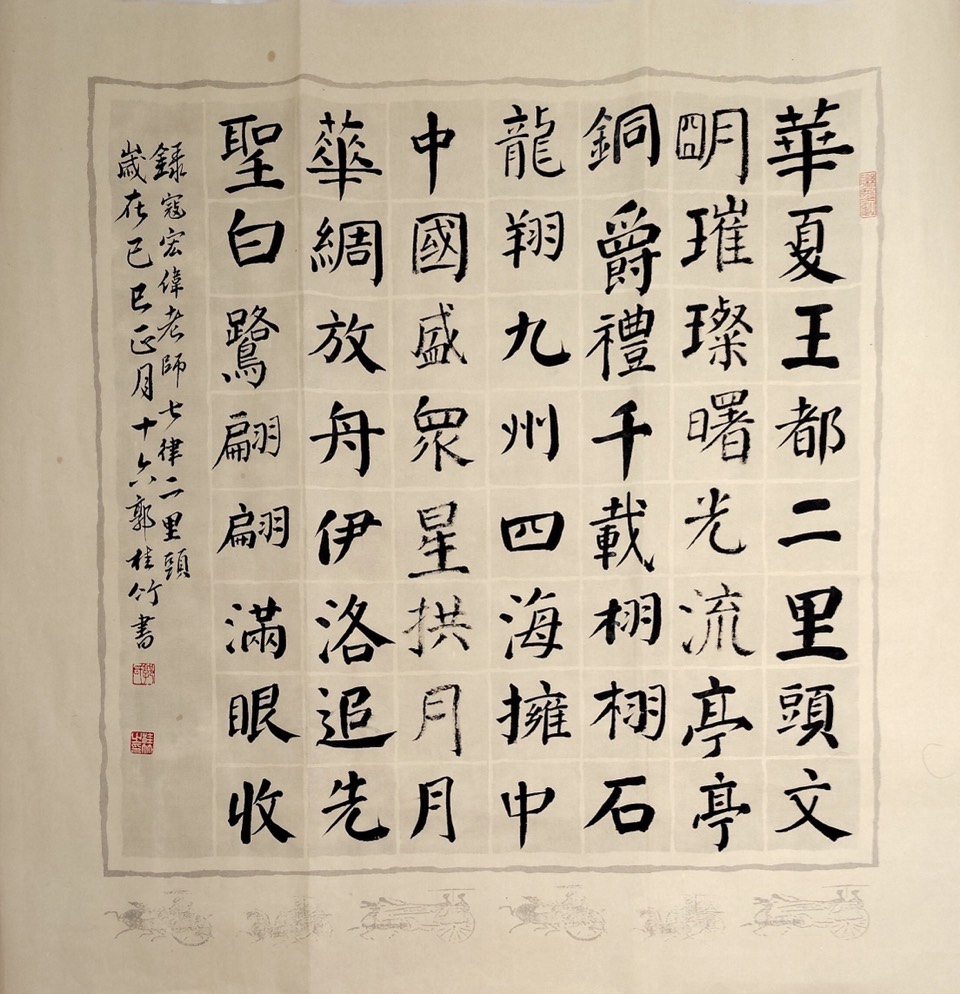 華夏王都二里頭文
明璀璨曙光流亭亭
銅爵禮千載栩栩石
龍翔九州四海擁中
中國盛眾星拱月月
華綢放舟伊洛追先
聖白鷺翩翩滿眼收
錄寇宏偉老師七律二里頭
歲在己巳正月十六郭桂竹書